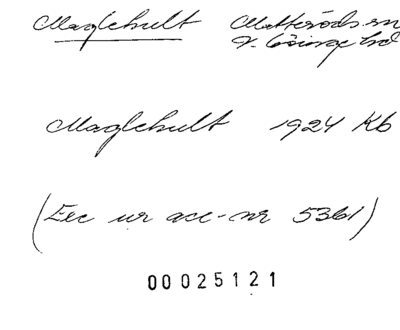 Maglehult Matteröds sn
V. Göinge hd
Maglehult 1924 Kb
(Exc ur acc-nr 5361)
00025121